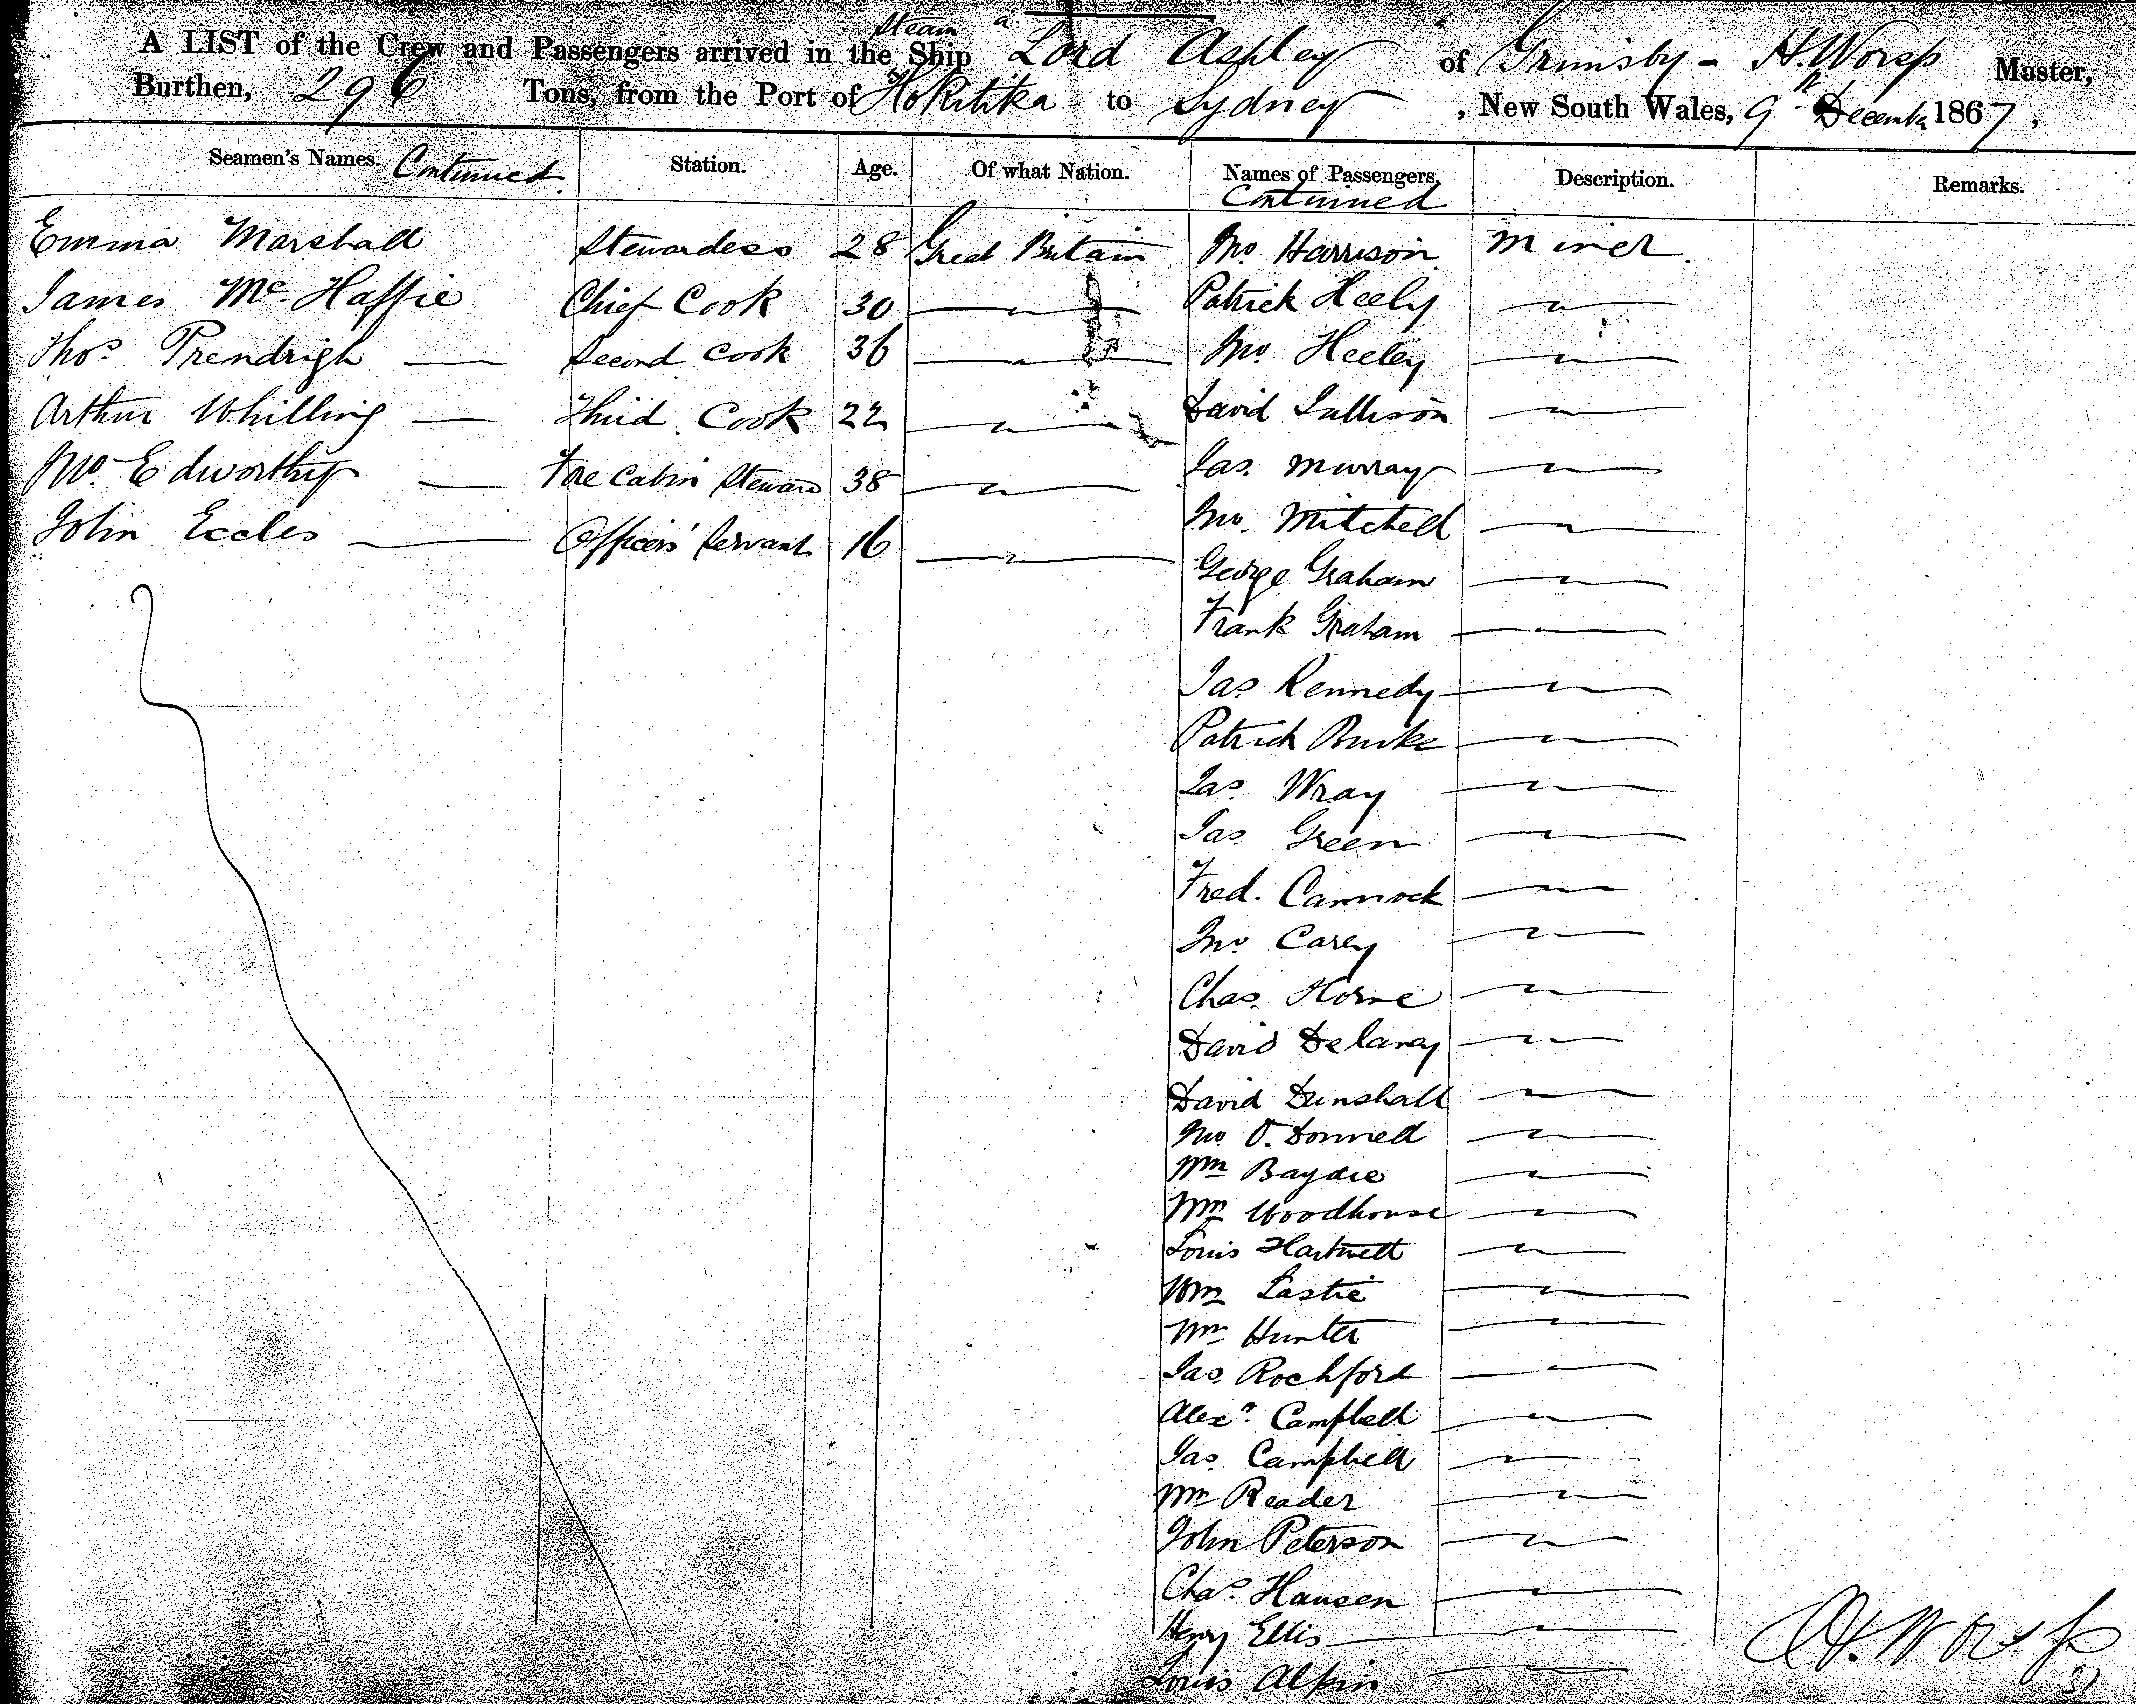 Steam
A LIST of the Crew and Passengers arrived in the Ship Lord Ashley of Grimsby - H. Worsp Master,
Burthen, 296 Tons, from the Port of Hokitika to Sydney, New South Wales, 9th December 1867,
Seamen's Names. Continued. Station. Age. Of what Nation. Names of Passengers. Continued Description. Remarks.
Emma Marshall Stewardess 28 Great Britain Jno. Harrison Miner.
James McHaffie Chief Cook 30 — " — Patrick Heely — " —
Thos. Prendrigh — Second Cook 36 — " — Jno. Heeley — " —
Arthur Whilling — Third Cook 22 — " — David — " —
Jno. Edworthy — Fore Cabin Steward 38 — " — Jas. Murray — " —
John Eccles — Officers' Servant 16 — " — Jno. Mitchell — " —
George Graham — " —
Frank Graham — " —
Jas Kennedy — " —
Patrick Burke — " —
Jas. Wray — " —
Jas. Green — " —
Fred. Cannock — " —
Jno Carey — " —
Chas. Horne — " —
David Delaney — " —
David Dunshall — " —
Jno O. Donnell — " —
Wm — " —
Wm Woodhouse — " —
Louis Hartnett — " —
Wm — " —
Wm Hunter — " —
Jas. Rochford — " —
Alexr. Campbell — " —
Jas. Campbell — " —
Wm Reader — " —
John Peterson — " —
Chas. Hansen — " —
Henry Ellis — " —
Louis Alpin — " —
H. Worsp